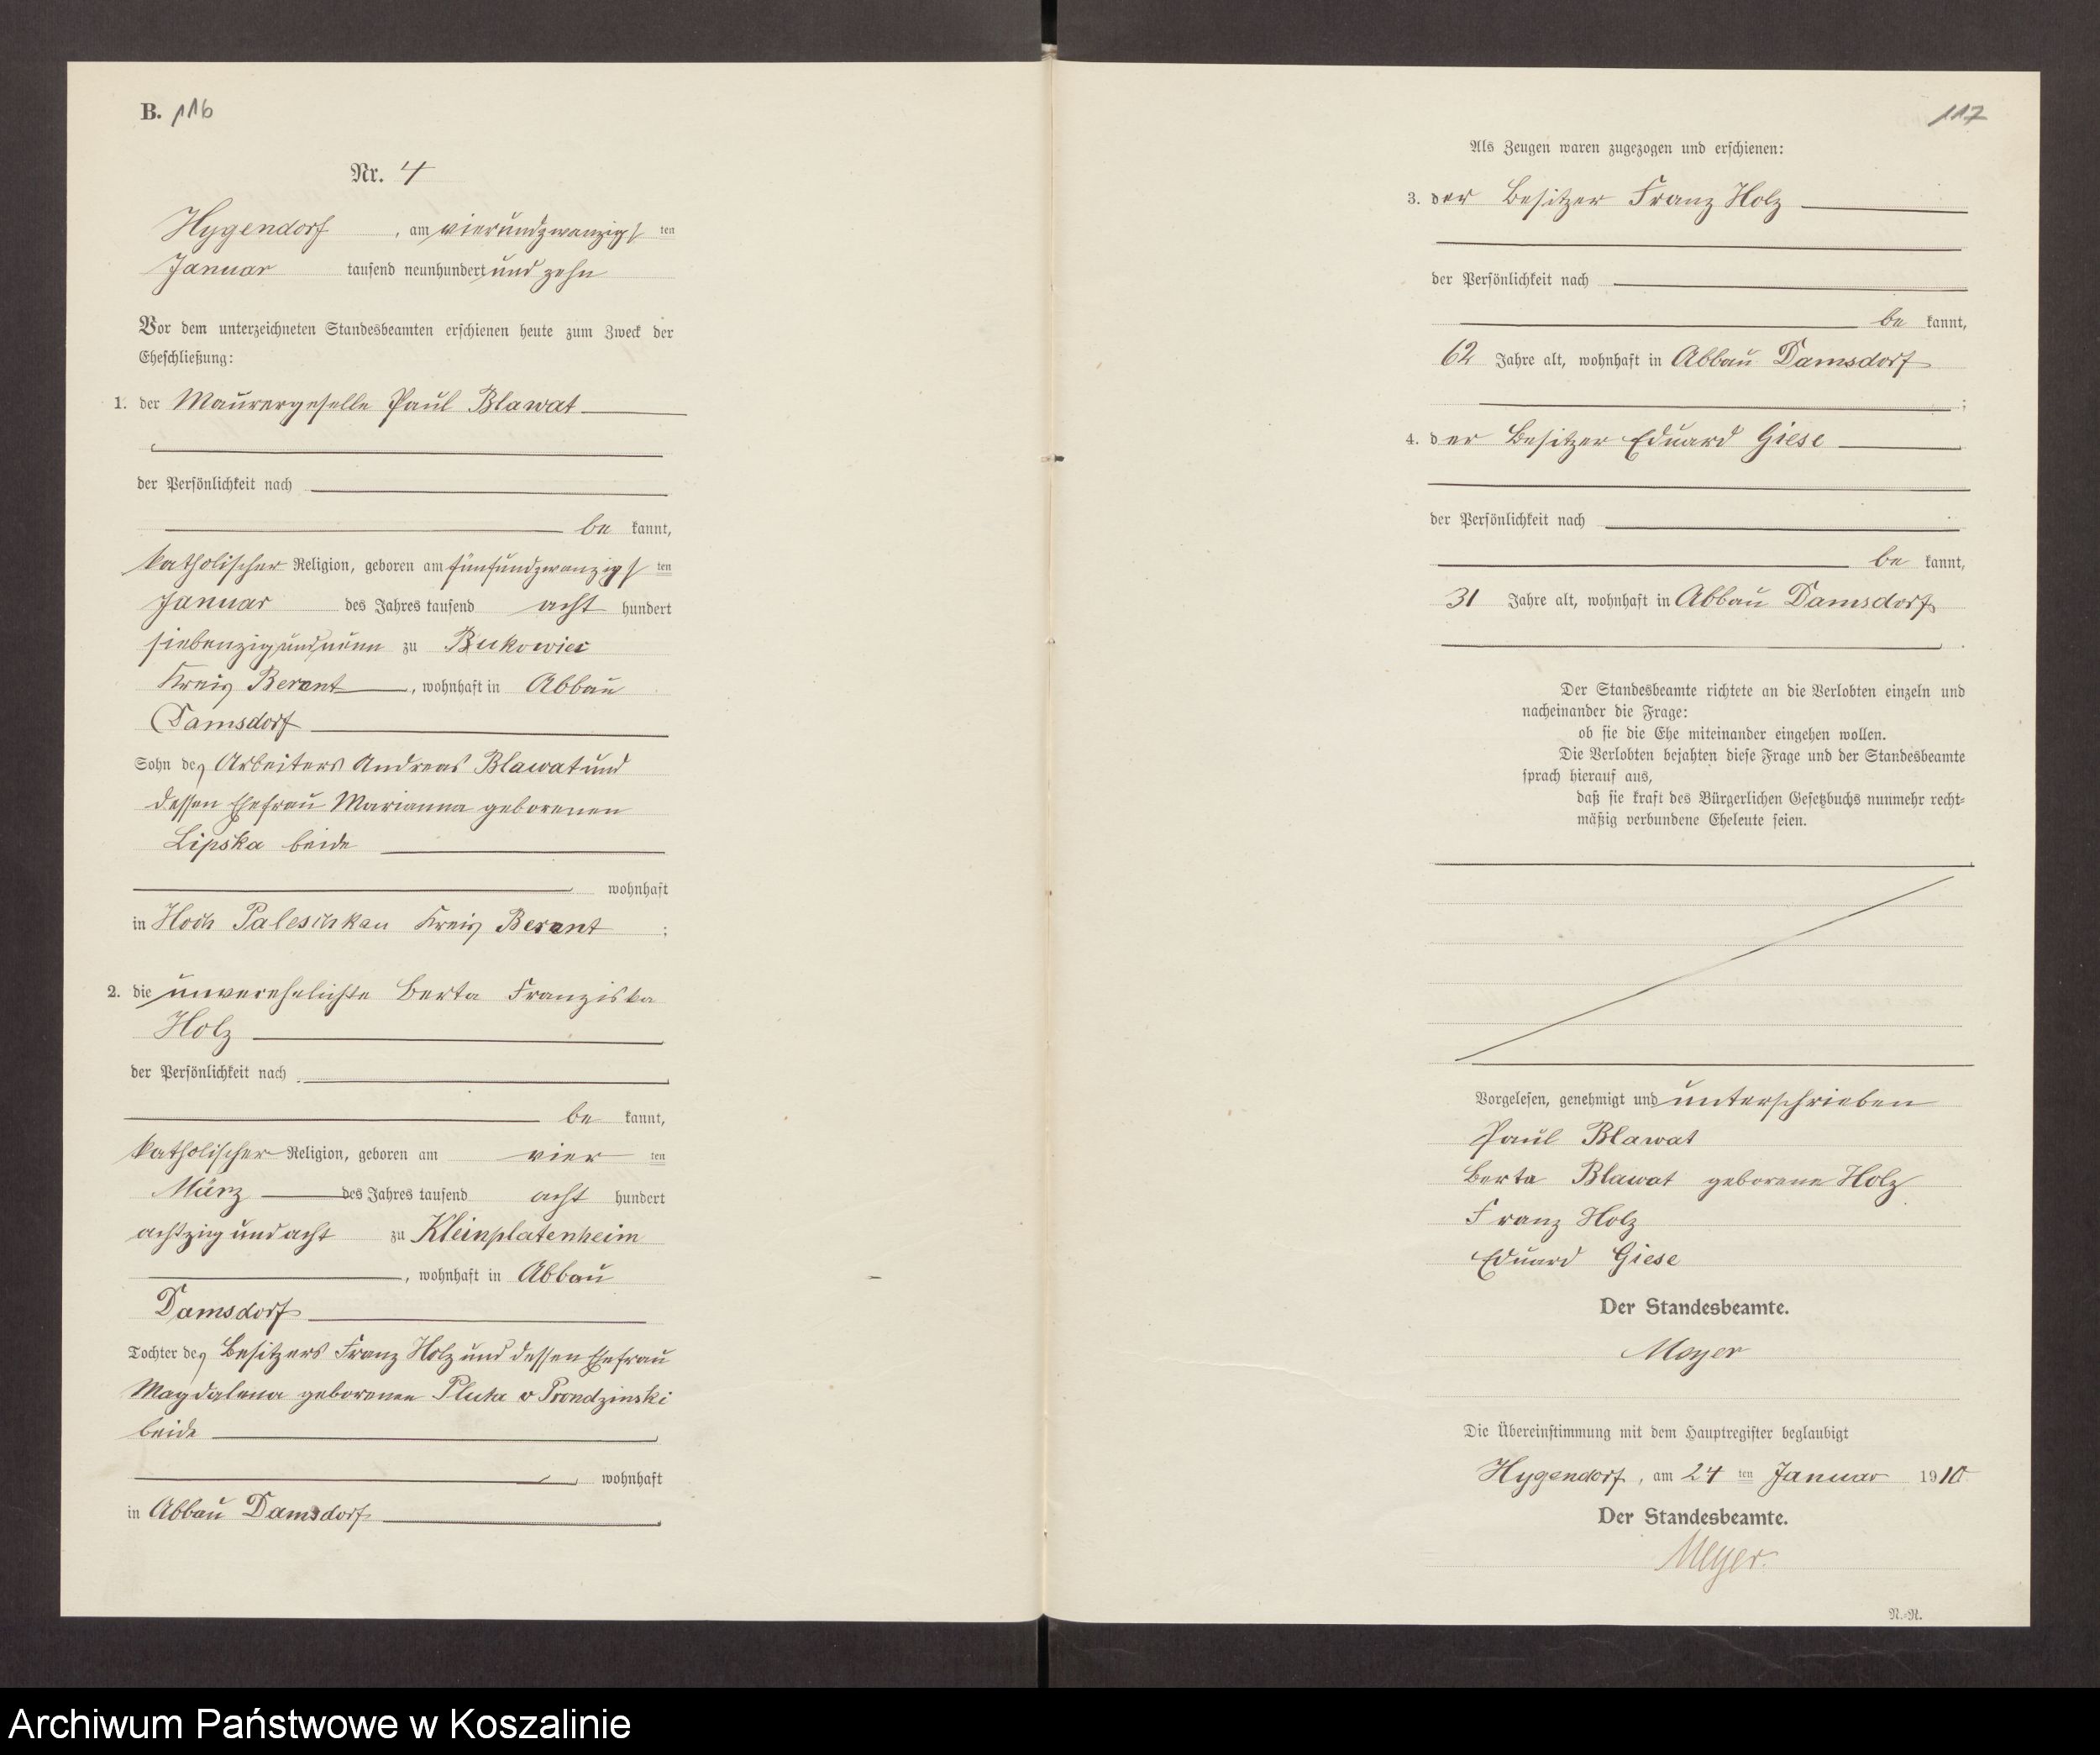 B. 116
Nr. 4
Hygendorf, am vierundzwanzigsten
Januar tausend neunhundert und zehn
Vor dem unterzeichneten Standesbeamten erschienen heute zum Zweck der
Eheschließung:
1. der Maurergeselle Paul Blawat
der Persönlichkeit nach
be kannt,
katholischer Religion, geboren am fünfundzwanzigsten
Januar des Jahres tausend acht hundert
siebenzig und neun zu Bukowiec
Kreis Berent, wohnhaft in Abbau
Damsdorf
Sohn des Arbeiters Andreas Blawat und
dessen Ehefrau Marianna geborenen
Lipska beide
wohnhaft
in Hoch Paleschken Kreis Berent;
2. die unverehelichte Berta Franziska
Holz
der Persönlichkeit nach
be kannt,
katholischer Religion, geboren am vier ten
März des Jahres tausend acht hundert
achtzig und acht zu Kleinplatenheim
, wohnhaft in Abbau
Damsdorf
Tochter des Besitzers Franz Holz und dessen Ehefrau
Magdalena geborenen Pluta v Prondzinski
beide
wohnhaft
in Abbau Damsdorf
117
Als Zeugen waren zugezogen und erschienen:
3. der Besitzer Franz Holz
der Persönlichkeit nach
be kannt,
62 Jahre alt, wohnhaft in Abbau Damsdorf
;
4. der Besitzer Eduard Giese
der Persönlichkeit nach
be kannt,
31 Jahre alt, wohnhaft in Abbau Damsdorf
.
Der Standesbeamte richtete an die Verlobten einzeln und
nacheinander die Frage:
ob sie die Ehe miteinander eingehen wollen.
Die Verlobten bejahten diese Frage und der Standesbeamte
sprach hierauf aus,
daß sie kraft des Bürgerlichen Gesetzbuchs nunmehr recht-
mäßig verbundene Eheleute seien.
Vorgelesen, genehmigt und unterschrieben
Paul Blawat
Berta Blawat geborene Holz
Franz Holz
Eduard Giese
Der Standesbeamte.
Meyer
Die Übereinstimmung mit dem Hauptregister beglaubigt
Hygendorf, am 24 ten Januar 1910
Der Standesbeamte.
Meyer.
N.-N.
Archiwum Państwowe w Koszalinie